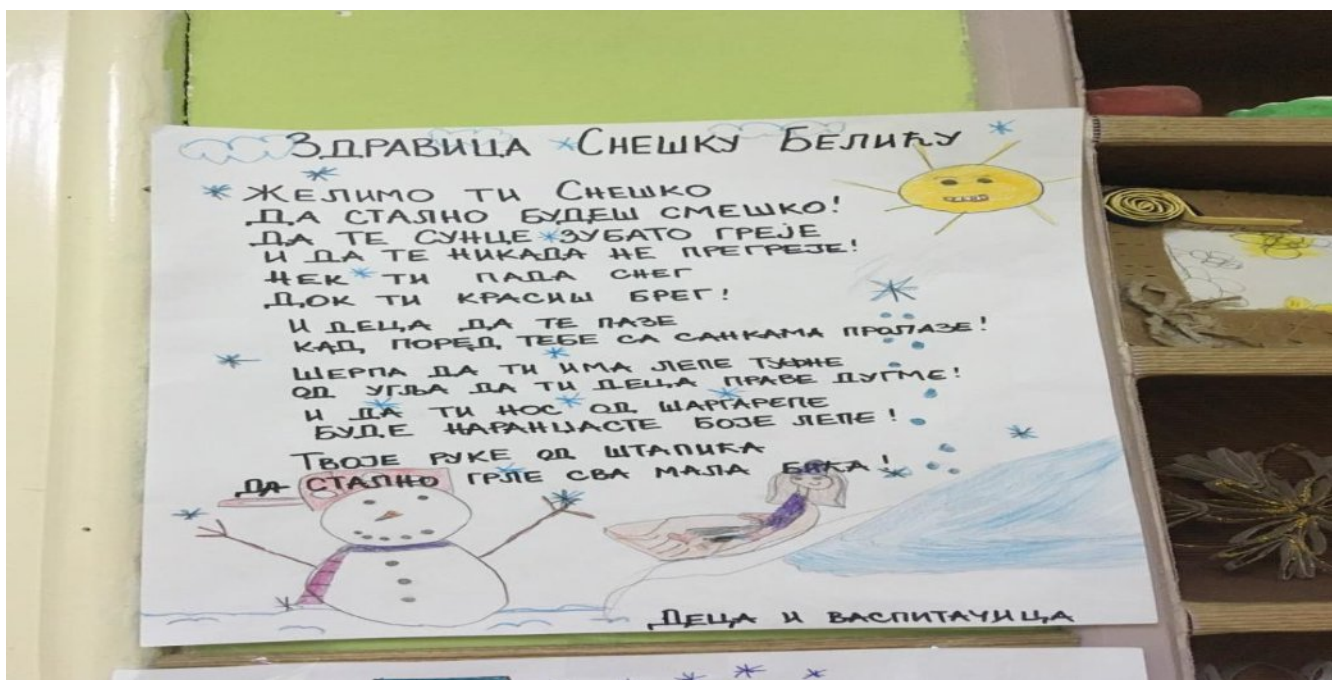 Здравица Снешку Белићу
Желимо ти Снешко
да стално будеш смешко!
Да те сунце зубато греје
и да те никада не прегреје!
Нек ти пада снег
док ти красиш брег!
И деца да те пазе
кад поред тебе са санкама пролазе!
Шерпа да ти има лепе туфне
од угља да ти деца праве дугме!
И да ти нос од шаргарепе
буде наранџасте боје лепе!
Твоје руке од штапића
да стално грле сва мала бића!
Деца и васпитачица